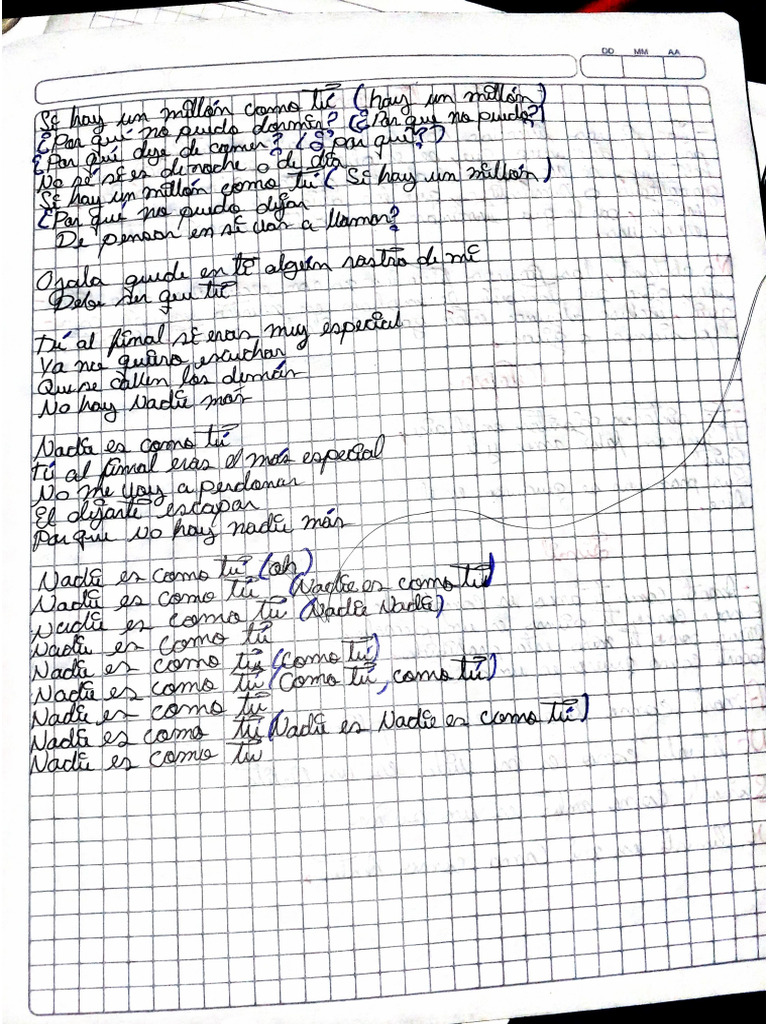 DD MM AA
Si hay un millón como tú (hay un millón)
¿Por qué no puedo dormir? (¿Por que no puedo?)
¿Por qué deje de comer? (¿por qué?)
No sé si es de noche o de día
Si hay un millón como tú (Si hay un millón)
¿Por qué no puedo dejar
De pensar en si vas a llamar?
Ojala quede en ti algún rastro de mi
Debe ser que tú
Tú al final si eras muy especial
Ya no quiero escuchar
Que se callen los demás
No hay Nadie más
Nadie es como tú
Tú al final eras el más especial
No me voy a perdonar
El dejarte escapar
Porque No hay nadie más
Nadie es como tú (oh)
Nadie es como tú (Nadie es como tú)
Nadie es como tú (Nadie Nadie)
Nadie es como tú
Nadie es como tú (como tú)
Nadie es como tú (Como tú, como tú)
Nadie es como tú
Nadie es como tú (Nadie es Nadie es como tú)
Nadie es como tú